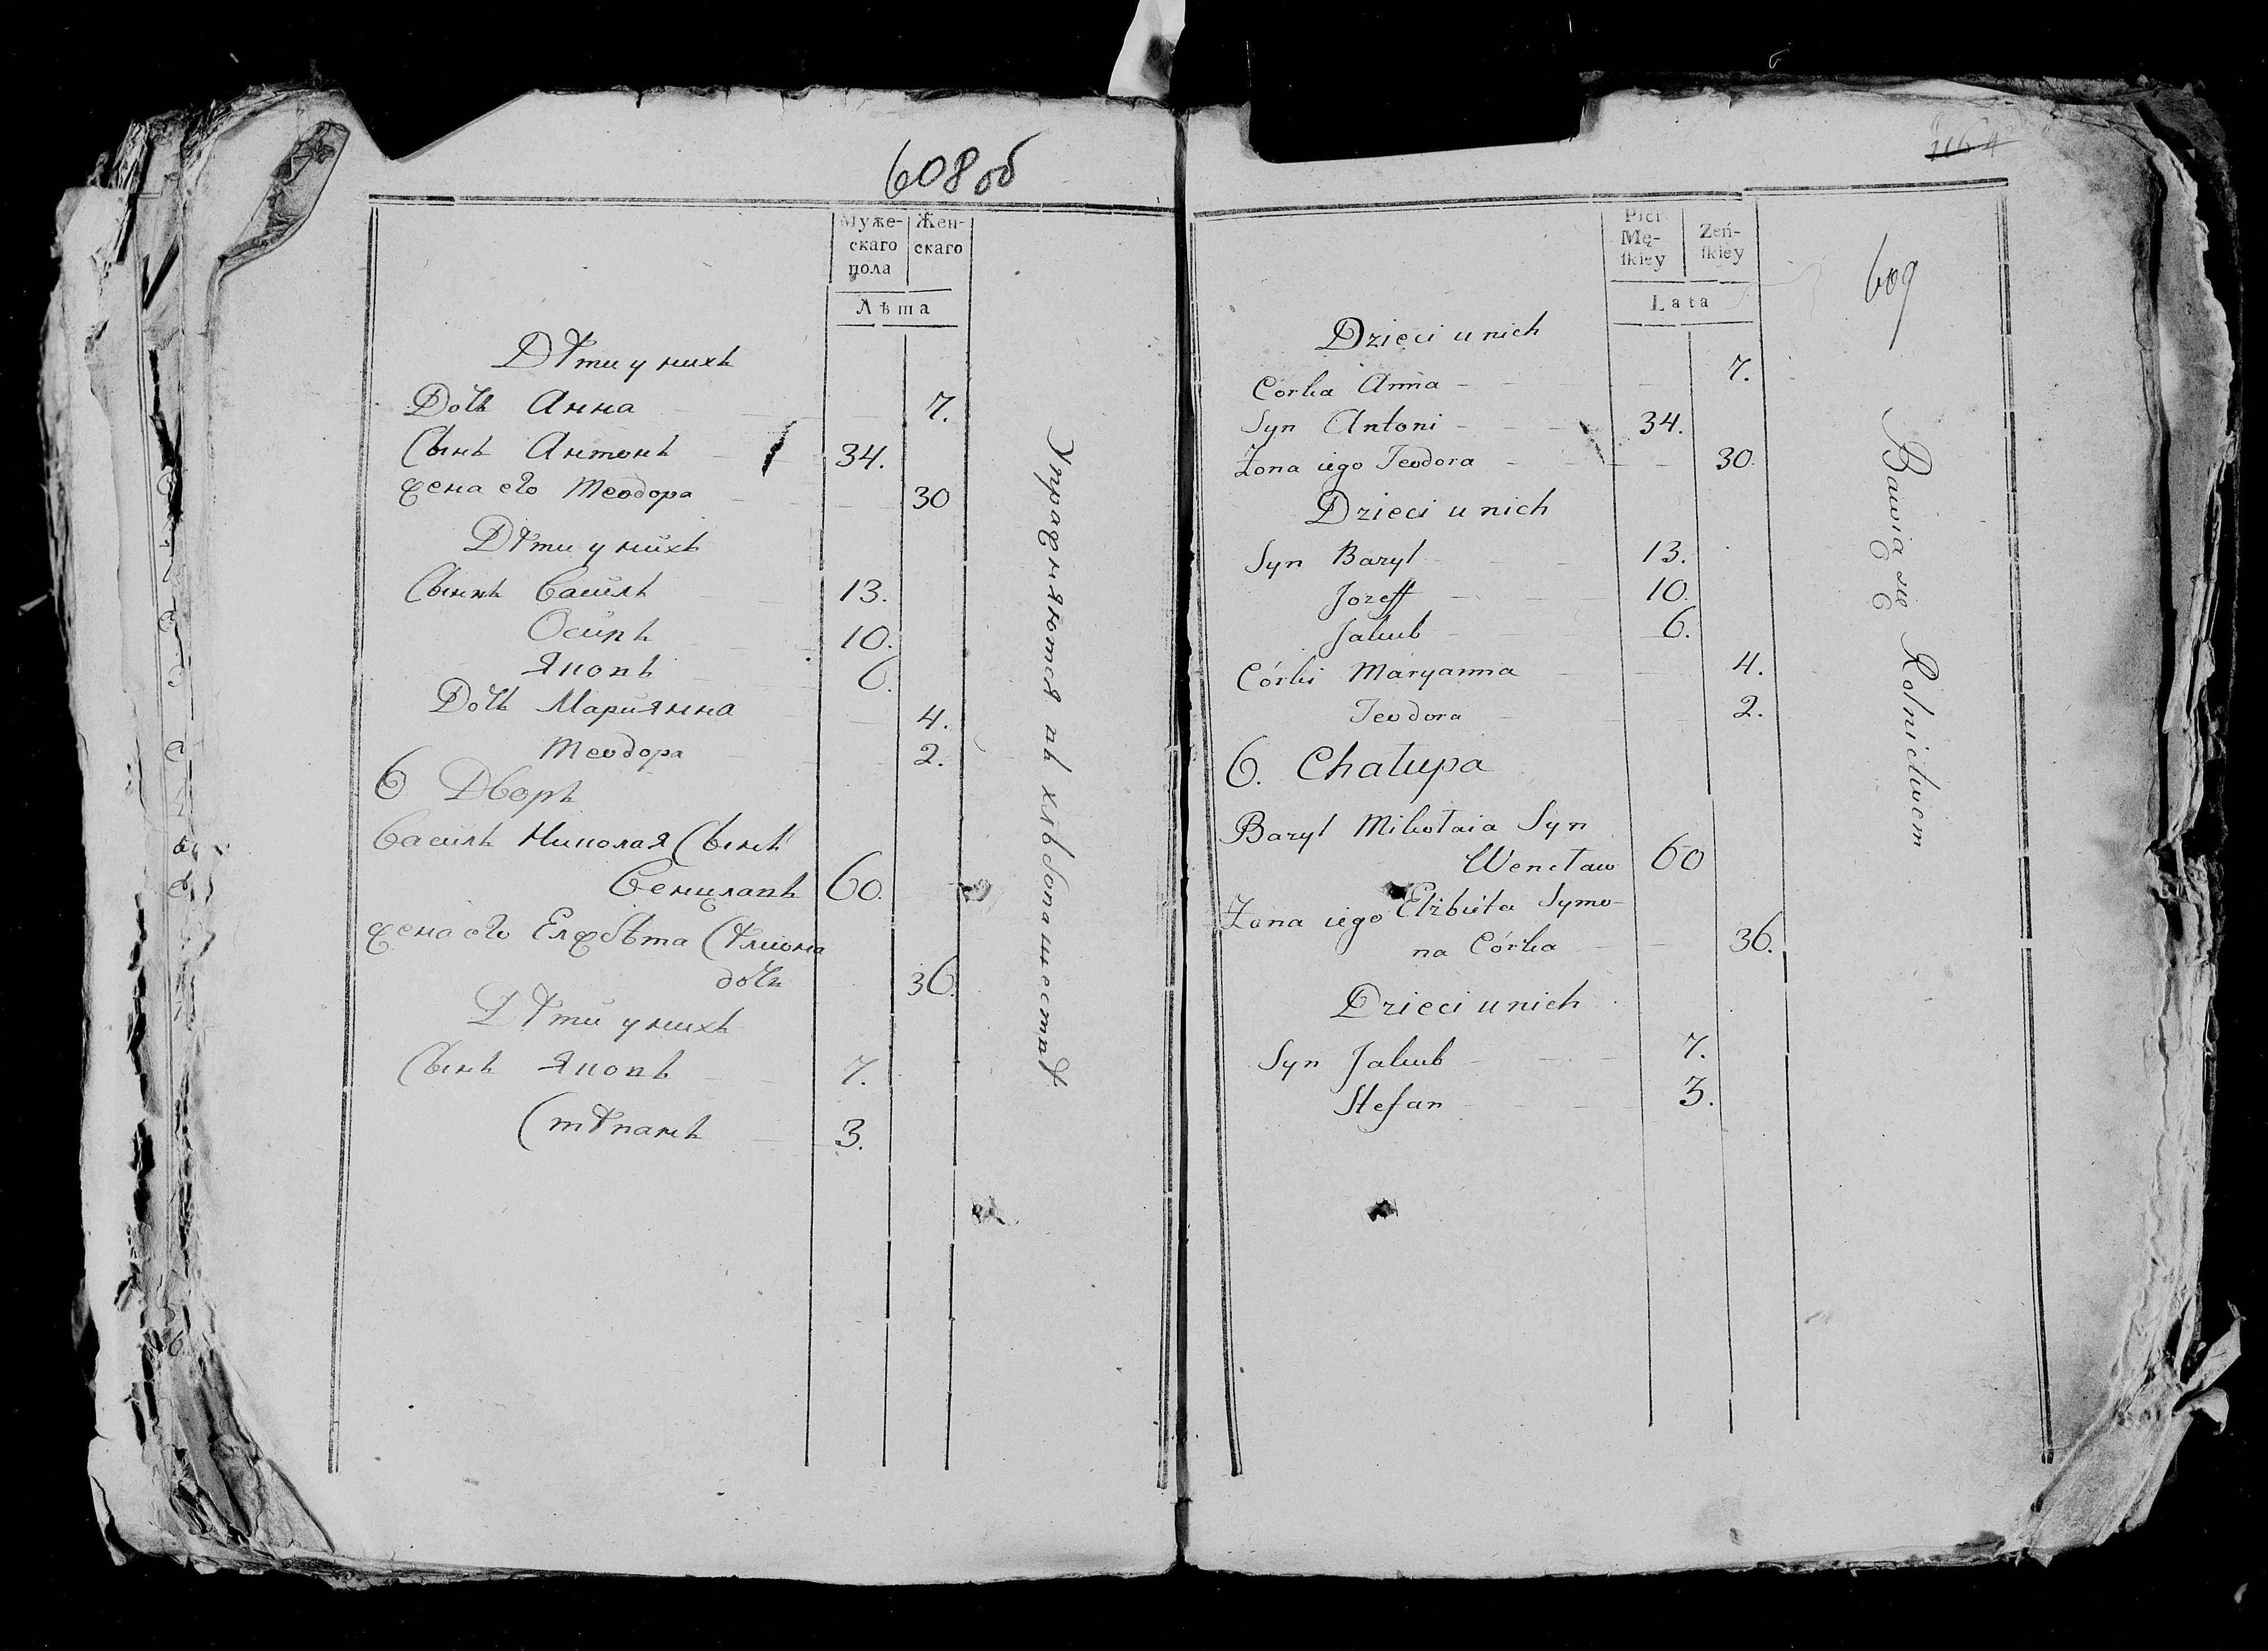 608 об
Муже-
скаго
пола
Жен-
скаго
Лѣта
Дѣти у нихъ
Дочь Анна 7.
Сынъ Антонъ 34.
жена его Теодора 30
Дѣти у нихъ
Сынъ Василь 13.
Осипъ 10.
Яковъ 6.
Дочь Мариянна 4.
Теодора 2.
6 Дворъ
Василь Николая Сынъ
Венцлавъ 60.
жена его Елжбѣта Сѣмиона
дочь 36.
Дѣти у нихъ
Сынъ Яковъ 7.
Стѣпанъ 3.
Упражняются въ хлѣбопашествѣ
1164
609
Płci
Mę-
skiey
Zeń-
skiey
Lata
Dzieci u nich
Córka Anna 7.
Syn Antoni 34.
Zona iego Teodora 30.
Dzieci u nich
Syn Bazyl 13.
Jozeff 10.
Jakub 6.
Córki Maryanna 4.
Teodora 2.
6. Chałupa
Bazyl Mikołaia Syn
Wencław 60
Zona iego Elżbiéta Symo-
na Córka 36.
Dzieci u nich
Syn Jakub 7.
Stefan 3.
Bawią się Rolnictwem